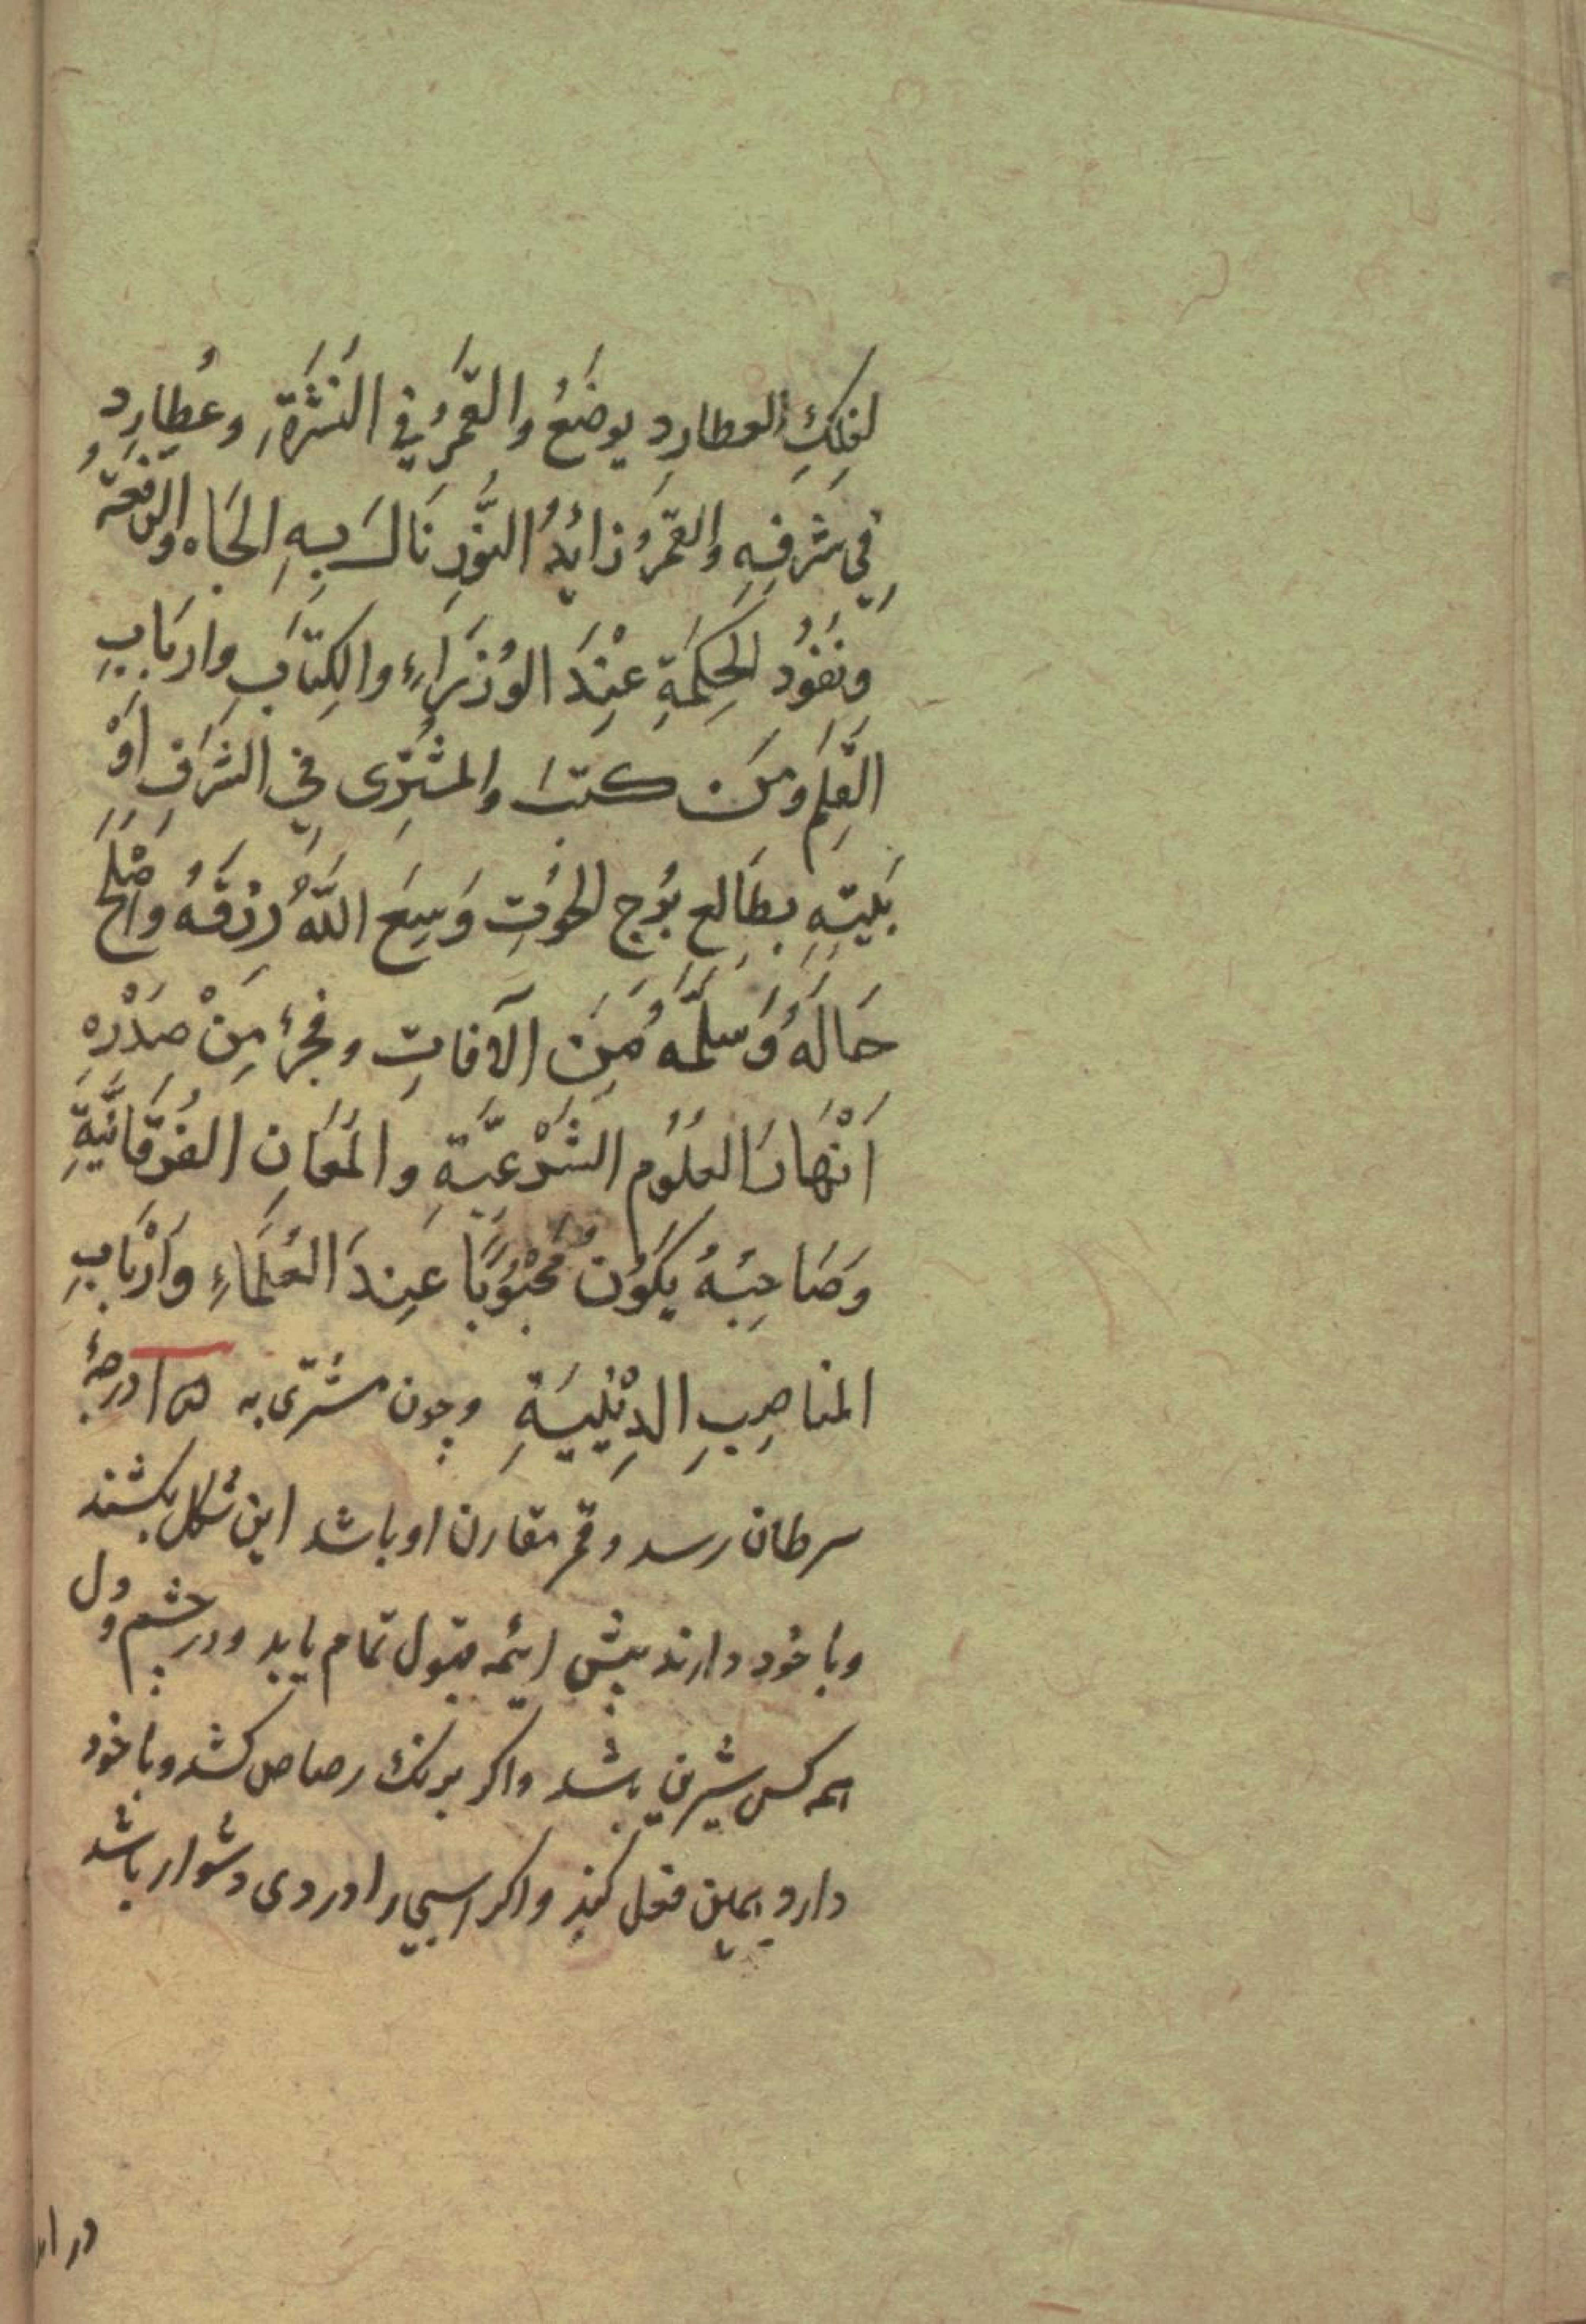 لفلك العطارد يوضَعُ والقَمَرُ في النَثَرَةِ وعُطارِد
فِي شَرَفِهِ والقمَرُ زائِدُ النّورِ نَالَ بِهِ الجَاه والرفعَةُ
ونفوُد الحِكمَةِ عِنْدَ الوُزَرَاءِ والكِتَابِ وارْبَابِ
القَلم ومَن كتبَ والمشتِرى فِي الشَرَفِ اَوْ
بَيتِهِ بطالِع بُرج الحوُتِ وَسِعَ اللّهُ رِزقَهُ وَاَصْلَحَ
حَالَهُ وَسَلَّمَهُ مِنَ الآفاتِ وفجرُ مِنْ صَدْرِهِ
اَنْهَارَ العلُوُم الشَرْعيَّةِ والمَعَانِ الفُرقَانِيَّةِ
وَصَاحِبُهُ يَكوُنُ مَحْبُوُبًا عِندَ العُلَمَاءِ وَاَرْبَابِ
المناصِبِ الدِيْنِيَةِ وچون مشترى به ١٥ درجۀ
سرطان رسد وقمر مقارن او باشد اين شكل بكشند
وبا خود دارند پيش ايمه قبول تمام يابد ودر چشم ودل
همه كس شيرين باشد واكر برنك رصاص كشد وبا خود
دارد همين فعل كند واكر اسبى را دردى دشوار باشد
در ار